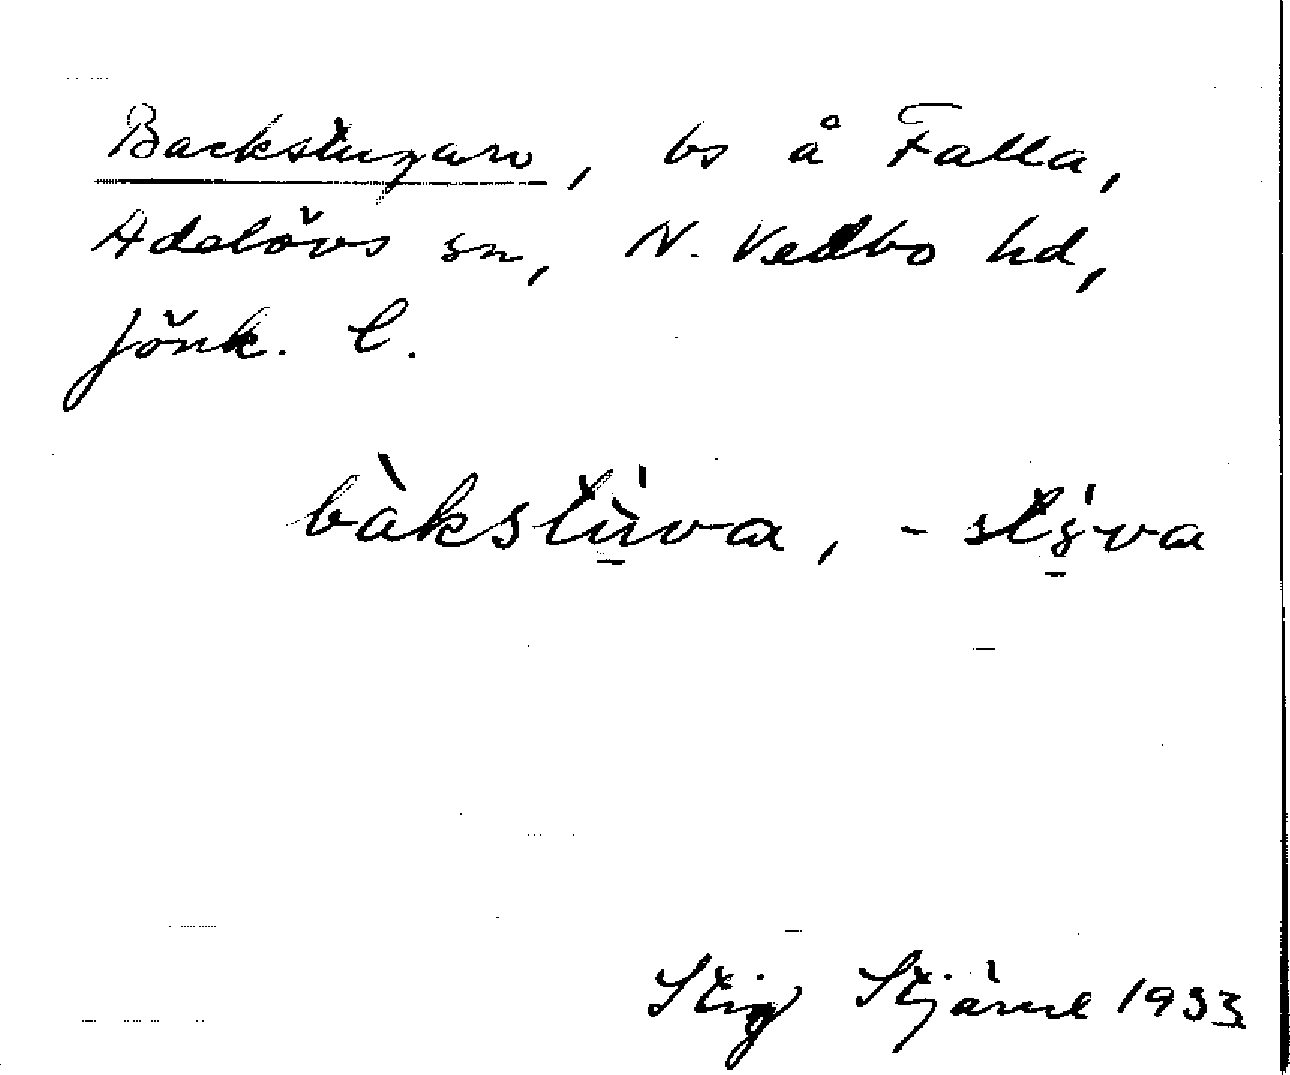 Backstugan, bs å Falla,
Adelövs sn, N. Vedbo hd,
Jönk. l.
bàkstùva, -stỳva
Stig Stjärne 1933